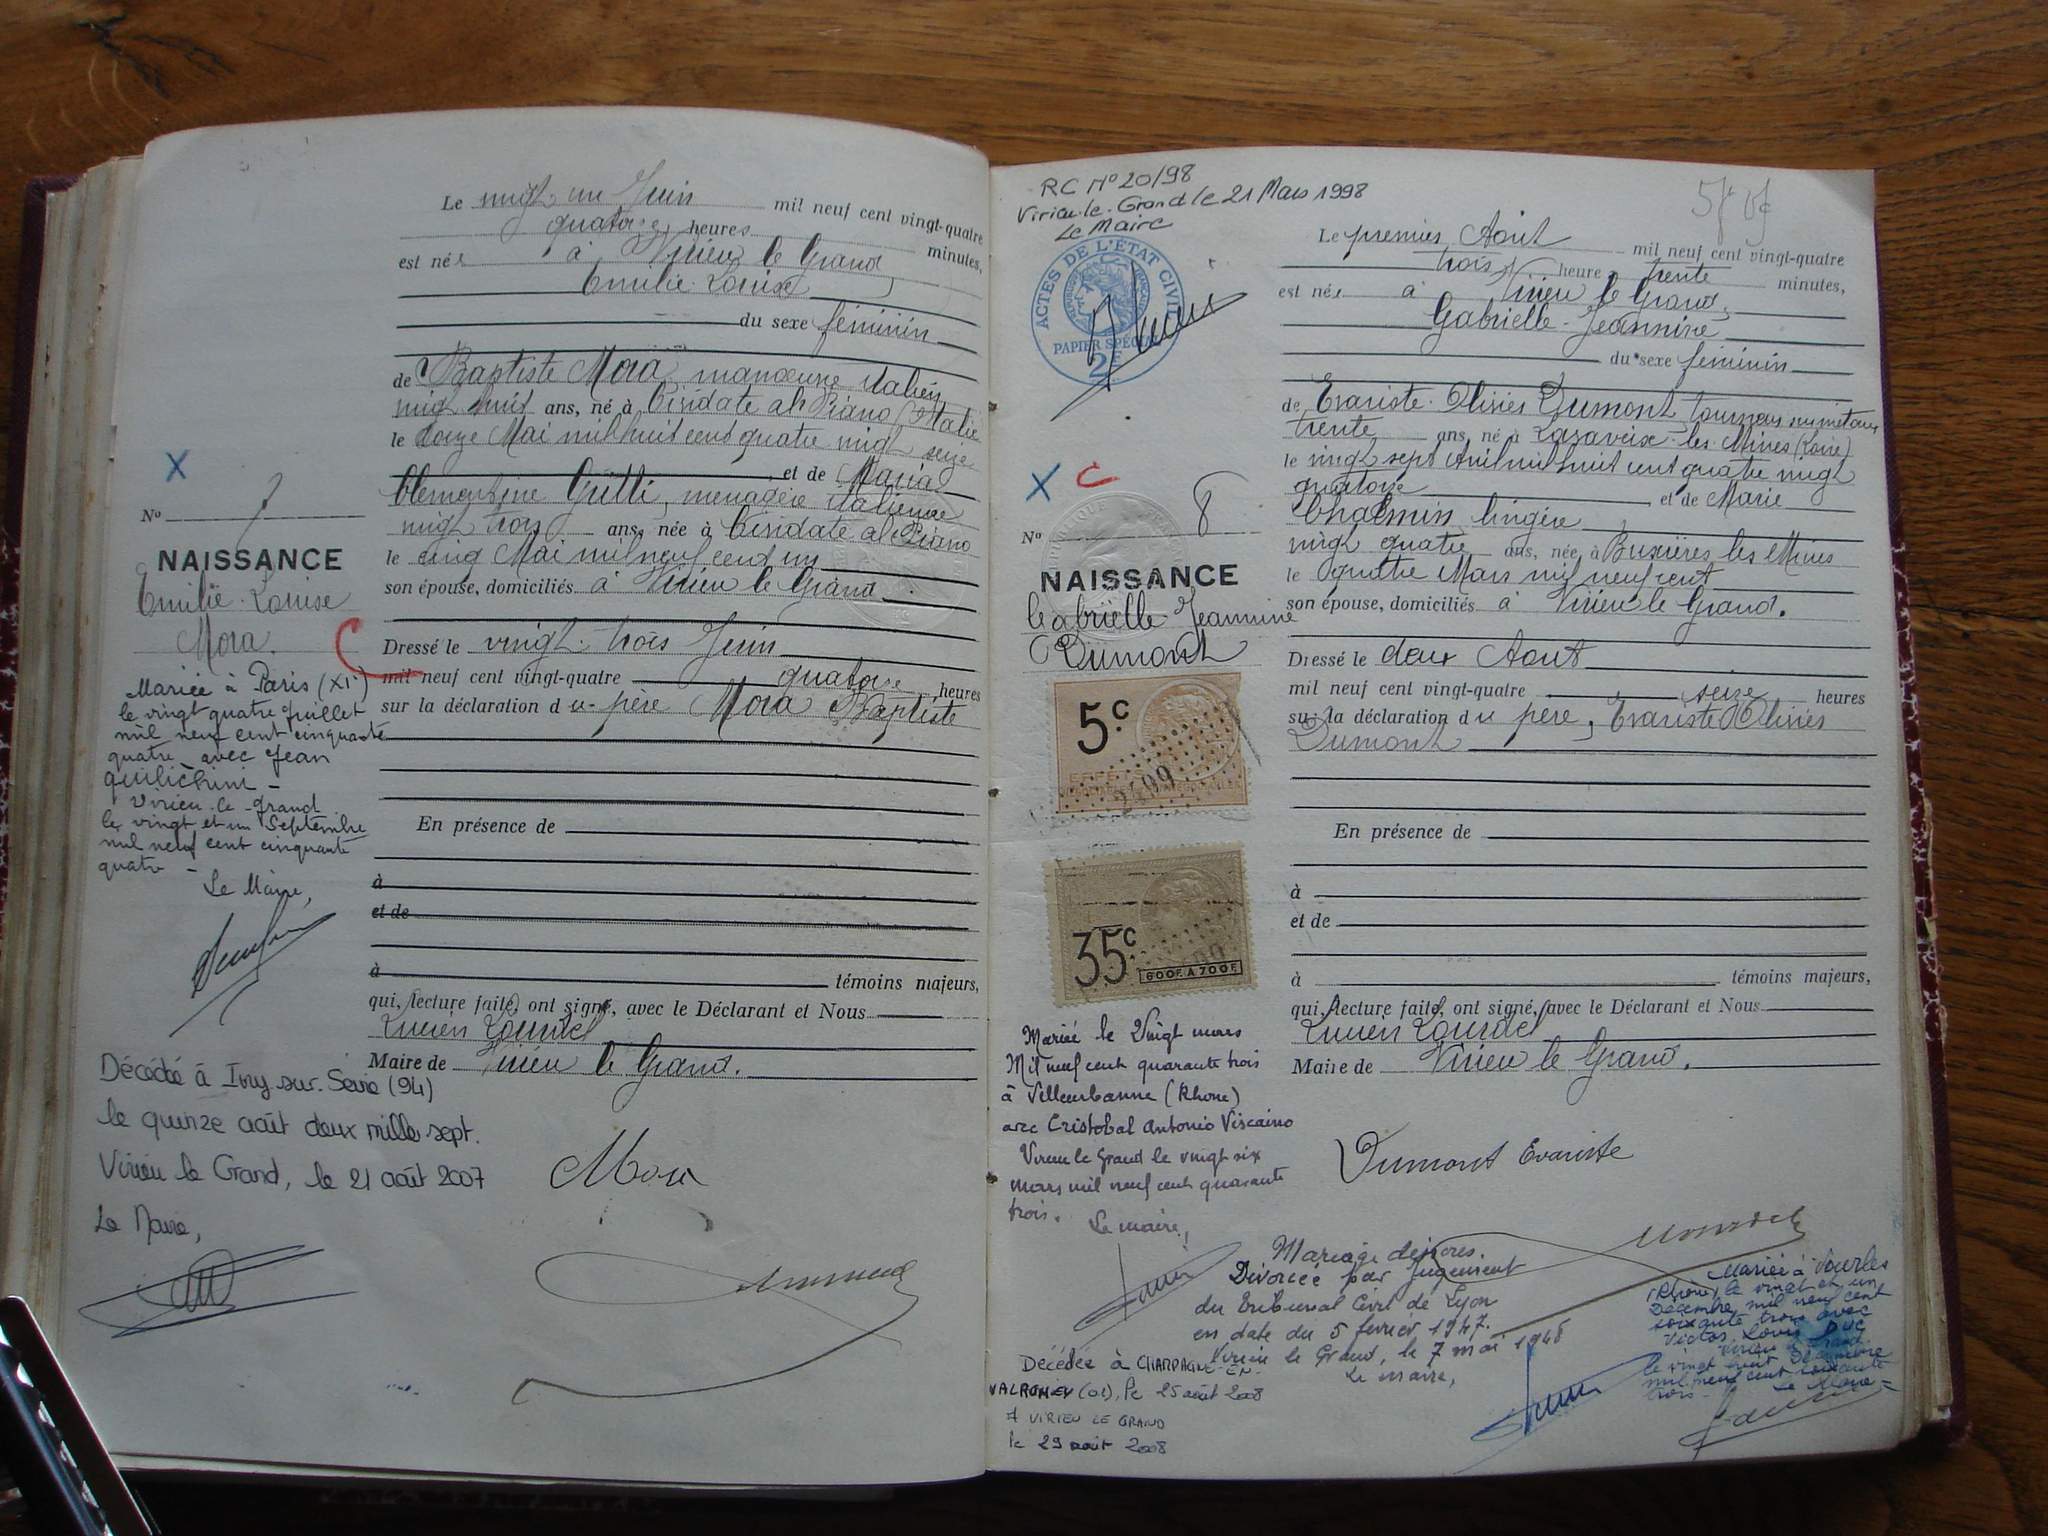 Le vingt un Juin mil neuf cent vingt-quatre
quatorze heures minutes,
est née à Virieu le Grand
Emilie Louise
du sexe féminin
de Baptiste Mora manoeuvre italien
vingt huit ans, né à Cividate al Piano (Italie
le douze Mai mil huit cent quatre vingt seize
et de Maria
Clementine Grilli, menagère italienne
vingt trois ans, née à Cividate al Piano
le cinq Mai mil neuf cent un
son épouse, domiciliés à Virieu le Grand.
Dressé le vingt-trois Juin
mil neuf cent vingt-quatre quatorze heures
sur la déclaration du père Mora Baptiste
En présence de
à
et de
à témoins majeurs,
qui, lecture faite, ont signé, avec le Déclarant et Nous
Lucien
Maire de Virieu le Grand.
Mora
X
No 7
NAISSANCE
Emilie Louise
Mora.
C
Mariée à Paris (XIe)
le vingt quatre Juillet
mil neuf cent cinquante
quatre avec Jean
quilichini -
Virieu-le-grand
le vingt et un Septembre
mil neuf cent cinquante
quatre -
Le Maire,
Décédée à Ivry-sur-Seine (94)
le quinze août deux mille sept.
Virieu le Grand, le 21 août 2007
Le Maire,
RC N° 20/98
Virieu-le-Grand le 21 Mars 1998
Le Maire
ACTES DE L'ÉTAT CIVIL
PAPIER SPÉCIAL
2F
Le premier Août mil neuf cent vingt-quatre
trois heure trente minutes,
est née à Virieu le Grand.
Gabrielle-Jeannine
du sexe féminin
de Evariste Olivier Dumont tourneur sur métaux
trente ans, né à les Mines (Loire)
le vingt sept Avril mil huit cent quatre vingt
quatorze et de Marie
Chalmin lingère
vingt quatre ans, née à Buxières les Mines
le quatre Mars mil neuf cent
son épouse, domiciliés à Virieu le Grand.
Dressé le deux Aout
mil neuf cent vingt-quatre seize heures
sur la déclaration du père, Evariste Olivier
Dumont
En présence de
à
et de
à témoins majeurs,
qui, lecture faite, ont signé, avec le Déclarant et Nous
Lucien
Maire de Virieu le Grand.
Dumont Evariste
X C
No 8
NAISSANCE
Gabrielle-Jeannine
Dumont
5c
2499
35c
600F. A 700F.
Mariée le Vingt mars
Mil neuf cent quarante trois
à Villeurbanne (Rhone)
avec Cristobal Antonio Viscaino
Virieu le Grand le vingt six
mars mil neuf cent quarante
trois.
Le maire,
Mariage dissous.
Divorcée par Jugement
du Tribunal Civil de Lyon
en date du 5 fevrier 1947.
Virieu le Grand, le 7 mai 1948
Le maire,
Mariée à Vourles
(Rhône) le vingt et un
Décembre mil neuf cent
soixante trois avec
Victor Louis Duc
Virieu le Grand
le vingt huit Décembre
mil neuf cent soixante
trois -
Le Maire
Décédée à CHAMPAGNE-EN-
VALROMEY (01), le 25 août 2008
A VIRIEU LE GRAND
le 29 août 2008